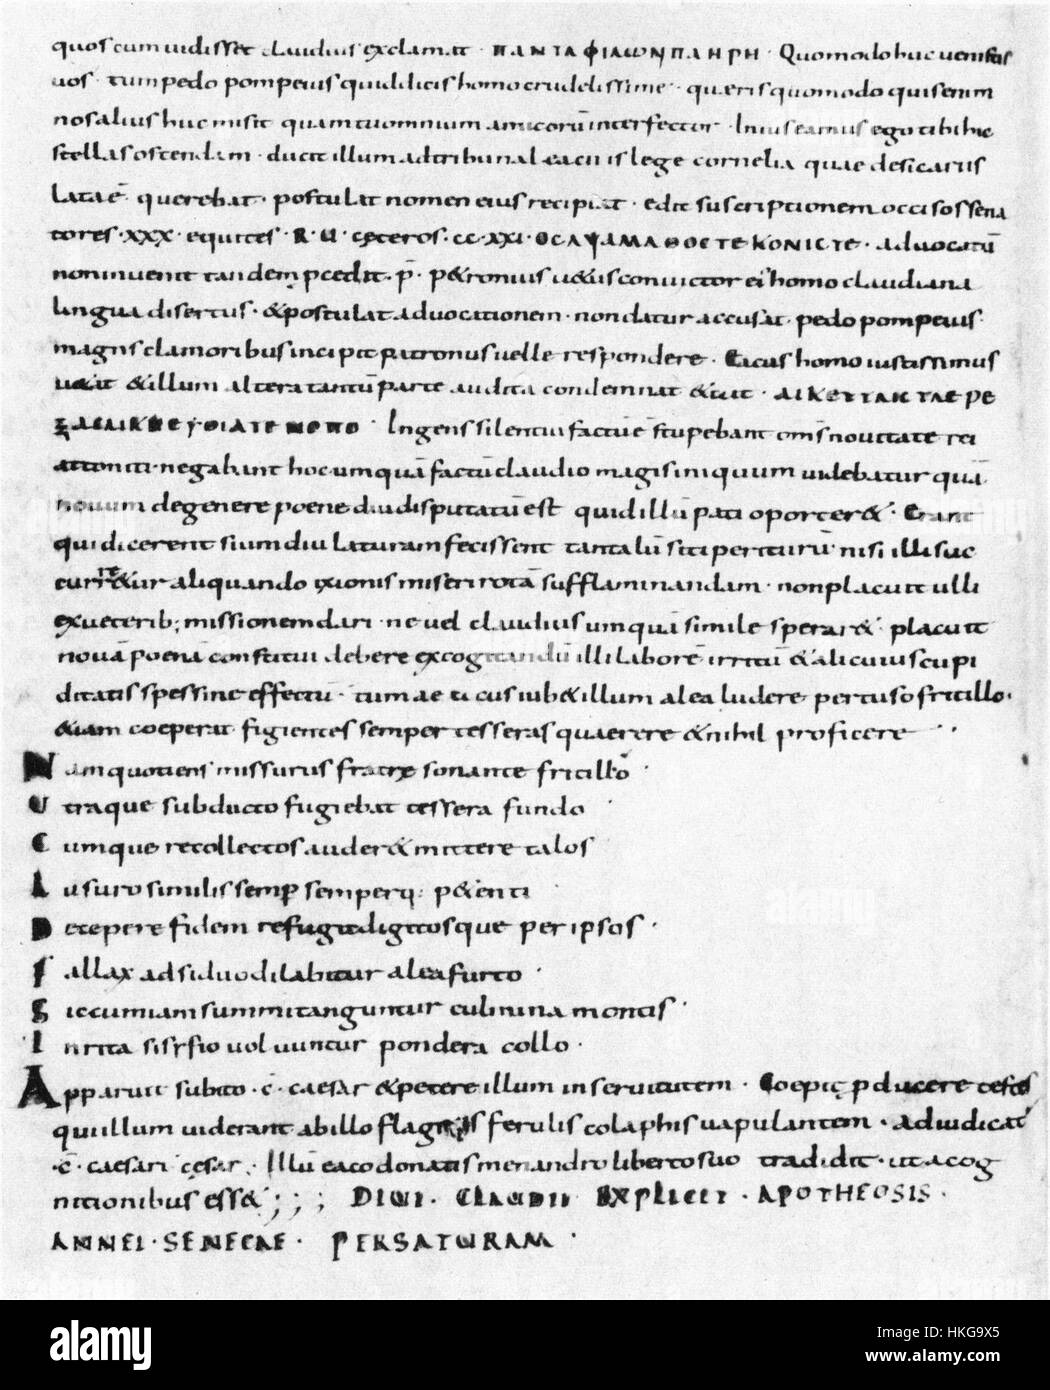 quos cum uidisset claudius exclamat · ΠΑΝΤΑ ΦΙΛΩΝ ΠΛΗΡΗ · Quomodo huc uenistis
uos · tum pedo pompeius quid dicis homo crudelissime · quæris quomodo quis enim
nos alius huc misit quam tu omnium amicorū interfector · In ius eamus ego tibi hic
stellas ostendam · ducit illum ad tribunal eaci is lege cornelia quae de sicariis
lata ē · querebat · postulat nomen eius recipiat · edit suscriptionem occisos sena
tores · XXX · equites · R · U · ceteros · CC · XXI · ΟCΑΨΑΜΑΘΟCΤΕΚΟΝΙCΤΕ · aduocatū
non inuenit tandem pcedit · p̄ · p&ronius u&us conuictor ei' homo claudiana
lingua disertus · &postulat aduocationem · non datur accusat · pedo pompeius
magnis clamoribus incipit patronus uelle respondere · Eacus homo iustissimus
u&at &illum altera tantū parte audita condemnat &ait · ΑΙΚΕ
Ingens silentiū factū ē stupebant oms̄ nouitate rei
attoniti · negabant hoc umquā factū claudio magis iniquum uidebatur quā
nouum de genere poene diu disputatū est quid illū pati oporter& · Erant
qui dicerent sium diu laturam fecissent tantalū siti periturū nisi illi suc
curr&ur aliquando ixionis miseri rotā sufflaminandam · non placuit ulli
ex ueterib; missionem dari · ne uel claudius umquā simile sperar& · placuit
nouā poenā constitui debere excogitandū illi laborē irritū &alicuius cupi
ditatis spes sine effectū · tum aeticus iub& illum alea ludere pertuso fritillo ·
&iam coeperat fugientes semper tesseras quaerere &nihil proficere
Nam quotiens missurus fratre sonante fritillo ·
Utraque subducto fugiebat tessera fundo
Cumque recollectos auder& mittere talos
Lusuro similis semp semperq: p&enti
Decepere fidem refugit digitosque per ipsos ·
Fallax adsiduo dilabitur alea furto ·
Sic cum iam summi tanguntur culmina montis ·
Inrita sisyfio uoluuntur pondera collo ·
Apparuit subito · C̄ · caesar &petere illum in seruitutem · Coepit pducere testes
qui illum uiderant ab illo flagris ferulis colaphis uapulantem · adiudicat'
· C̄ · caesari cesar · Illū eaco donat is menandro liberto suo tradidit · ut a cog
nitionibus ess& ; ; ; DIUI · CLAUDII EXPLICIT · APOTHEOSIS ·
ANNEI · SENECAE · PER SATURAM ·
alamy
Image ID: HKG9X5
www.alamy.com